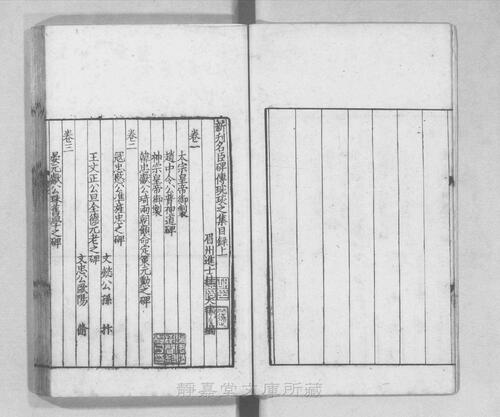 新刋名臣碑傳琬琰之集目録上
眉州進士杜大珪編
卷一
太宗皇帝御製
趙中令公普神道碑
神宗皇帝御製
韓忠獻公琦兩朝顧命定策元勳之碑
卷二
寇忠愍公準旌忠之碑
文懿公孫抃
王文正公旦全德元老之碑
文忠公歐陽脩
卷三
晏元獻公殊舊學之碑
靜嘉堂文庫所藏